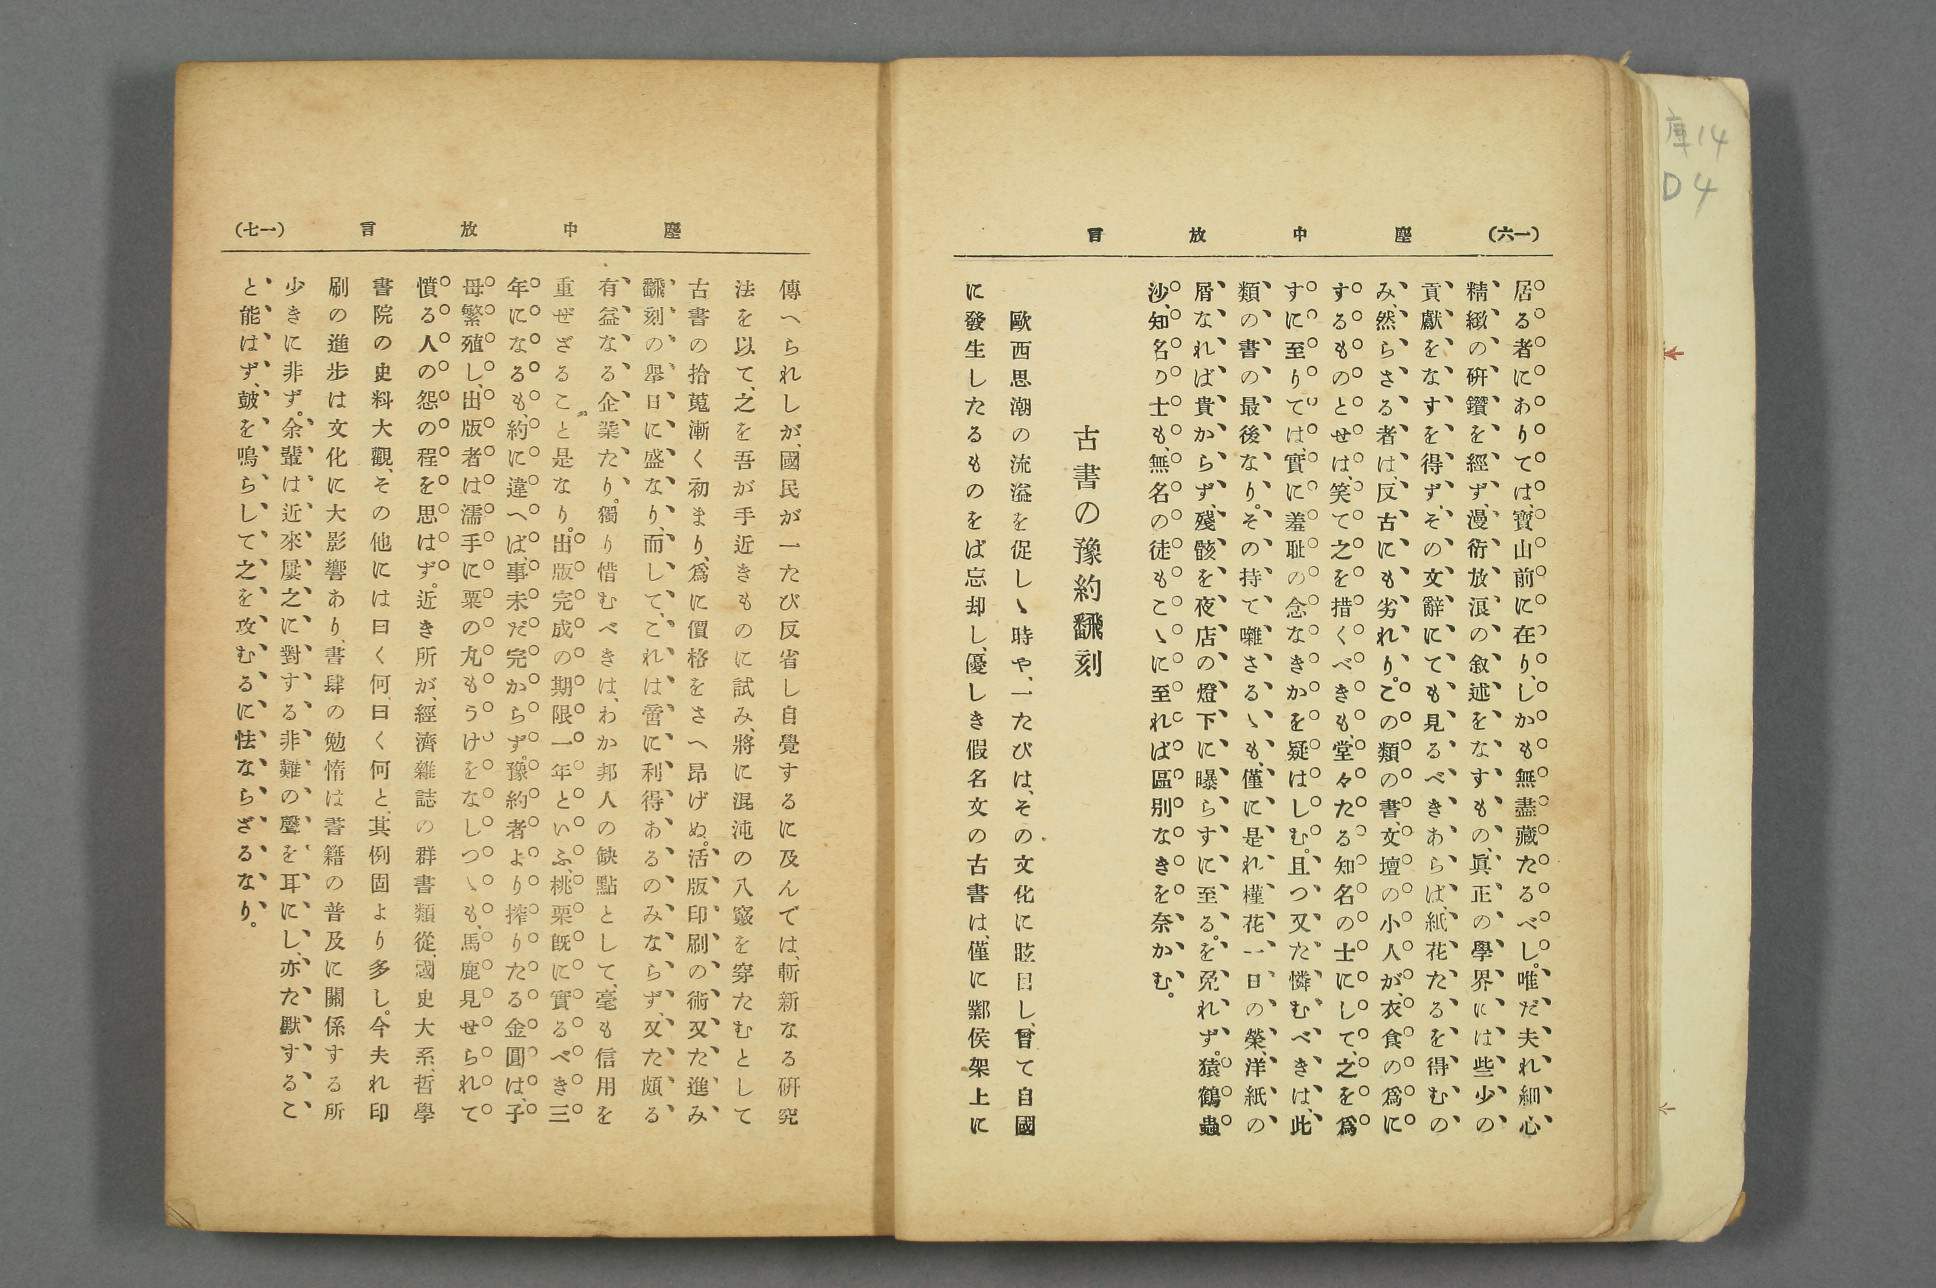 庫14
D4
(一六) 塵中放言
居る者にありては、寶山前に在り、しかも無盡藏たるべし。唯だ夫れ細心
精緻の硏鑽を經ず、漫衍放浪の敍述をなすもの、眞正の學界には些少の
貢獻をなすを得ず、その文辭にても見るべきあらば、紙花たるを得むの
み、然らさる者は、反古にも劣れり。この類の書、文壇の小人が、衣食の爲に
するものとせは、笑て之を措くべきも、堂々たる知名の士にして、之を爲
すに至りては、實に羞耻の念なきかを疑はしむ。且つ又た憐むべきは、此
類の書の最後なり。その持て囃さるゝも、僅に是れ槿花一日の榮、洋紙の
屑なれば貴からず、殘骸を夜店の燈下に曝らすに至る。を免れず。猿鶴蟲
沙、知名の士も、無名の徒もこゝに至れば區別なきを奈かむ。
古書の豫約飜刻
歐西思潮の流溢を促しゝ時や、一たびは、その文化に眩目し、曾て自國
に發生したるものをば忘却し、優しき假名文の古書は、僅に鄴侯架上に
塵中放言 (一七)
傳へられしが、國民が一たび反省し自覺するに及んでは、斬新なる硏究
法を以て、之を吾が手近きものに試み、將に混沌の八竅を穿たむとして
古書の拾蒐漸く初まり、爲に價格をさへ昂げぬ。活版印刷の術又た進み
飜刻の擧日に盛なり、而して、これは啻に利得あるのみならず、又た頗る
有益なる企業たり。獨り惜むべきは、わか邦人の缺點として、毫も信用を
重ぜざること是なり。出版完成の期限一年といふ、桃栗旣に實るべき三
年になるも、約に違へば、事未だ完からず。豫約者より搾りたる金圓は、子
母繁殖し、出版者は濡手に粟の丸もうけをなしつゝも、馬鹿見せられて
憤る人の怨の程を思はず。近き所が、經濟雜誌の群書類從、國史大系、哲學
書院の史料大觀、その他には曰く何、曰く何と、其例固より多し。今夫れ印
刷の進步は文化に大影響あり、書肆の勉惰は書籍の普及に關係する所
少きに非ず。余輩は近來屢之に對する非難の聲を耳にし、亦た默するこ
と能はず、皷を鳴らして之を攻むるに怯ならざるなり。